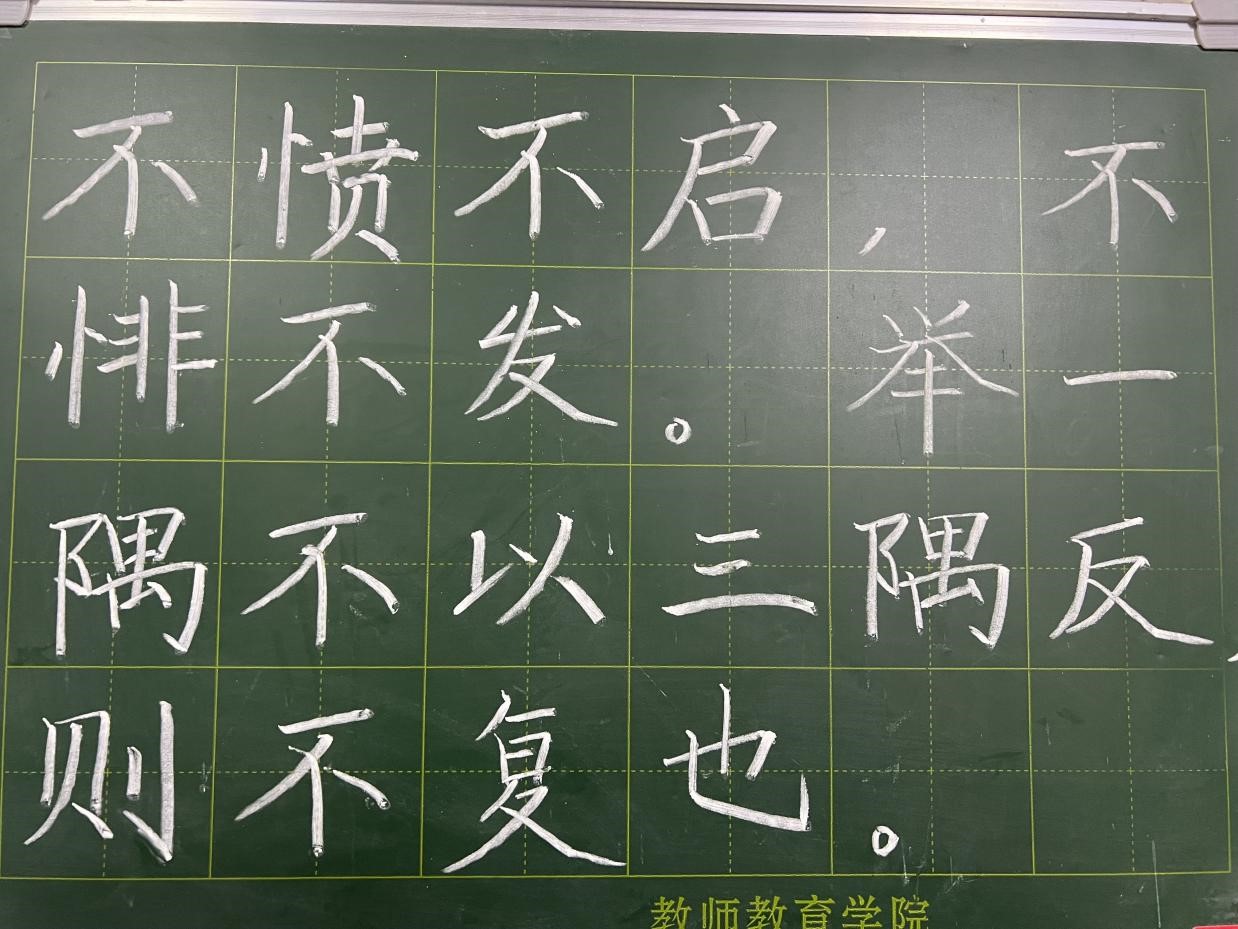 不愤不启，不
悱不发。举一
隅不以三隅反，
则不复也。
教师教育学院